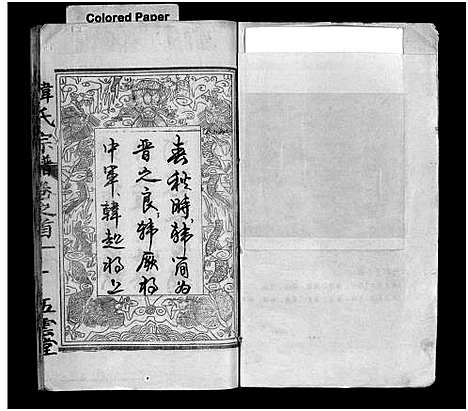 Colored Paper
春秋時，韓簡為
晉之良，韓厥將
中軍，韓起將上
韓氏宗譜 卷之首 一 五雲堂